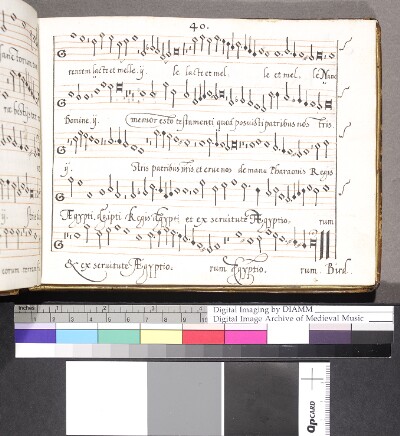 40.
rentem lacte et melle. ij. le lacte et mel. le et mel. le Nunc
Domine. ij. memor esto testamenti quod posuisti patribus nos tris.
ij. Stris patribus nris et erue nos de manu Pharaonis Regis
Ægypti, Ægipti Regis Ægypti et ex seruitute Ægyptio. rum
& ex seruitute Ægyptio. rum Ægyptio. rum. Bird.
Inches
Digital Imaging by DIAMM
Digital Image Archive of Medieval Music
QPCARD